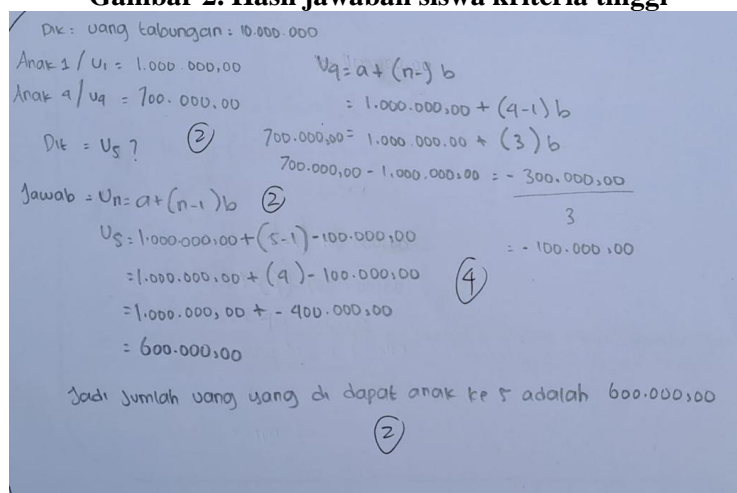 Gambar 2. Hasil jawaban siswa kriteria tinggi
Dik: uang tabungan: 10.000.000
Anak 1 / U1 = 1.000.000,00
Anak 4 / U4 = 700.000,00
Dit = U5 ? ②
Jawab = Un = a + (n-1) b ②
U5 = 1.000.000,00 + (5-1) -100.000,00
= 1.000.000,00 + (4) - 100.000,00 ④
= 1.000.000,00 + - 400.000,00
= 600.000,00
U4 = a + (n-1) b
= 1.000.000,00 + (4-1) b
700.000,00 = 1.000.000.00 + (3) b
700.000,00 - 1.000.000,00 = - 300.000,00
3
= - 100.000,00
Jadi Jumlah uang yang di dapat anak ke 5 adalah 600.000,00
②